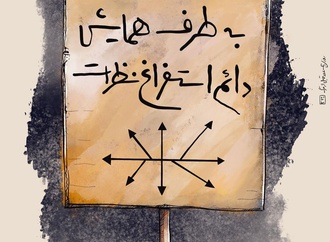 به طرف همایش
دائم استفراغ نظرات